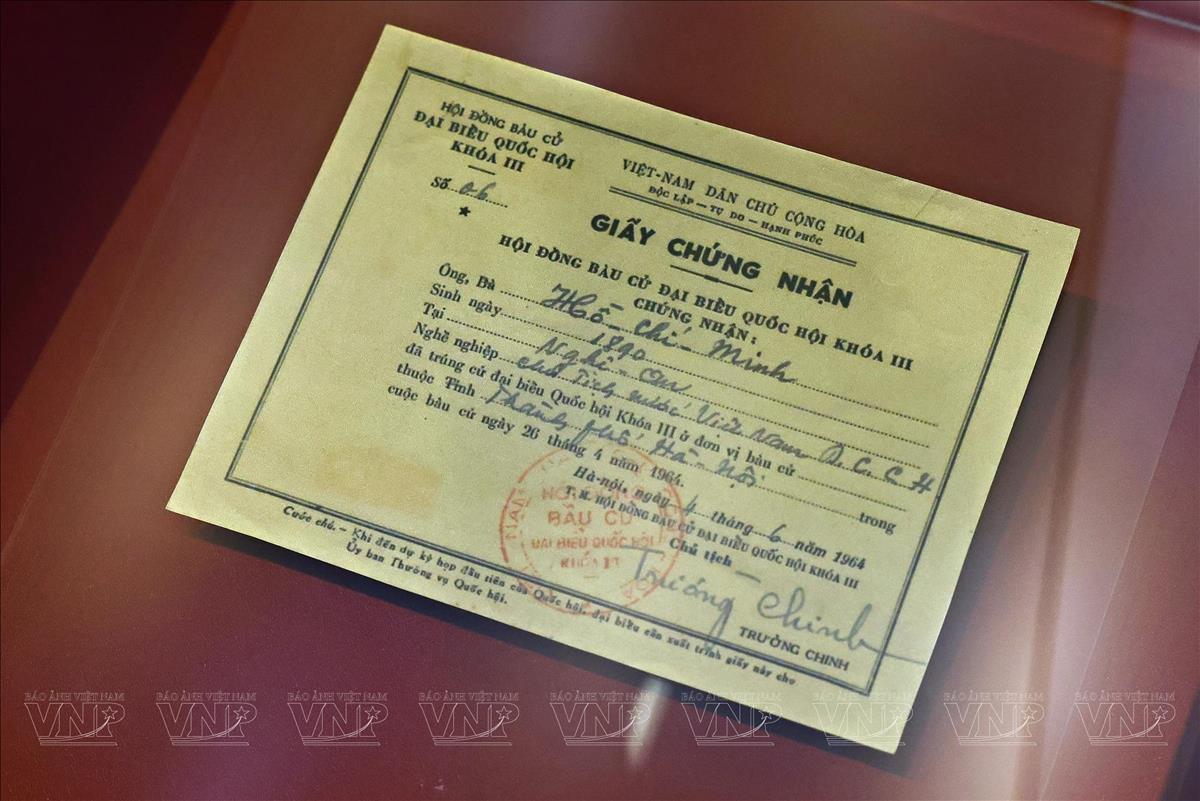 HỘI ĐỒNG BẦU CỬ
ĐẠI BIỂU QUỐC HỘI
KHÓA III
Số 06
VIỆT-NAM DÂN CHỦ CỘNG HÒA
ĐỘC LẬP — TỰ DO — HẠNH PHÚC
GIẤY CHỨNG NHẬN
HỘI ĐỒNG BẦU CỬ ĐẠI BIỂU QUỐC HỘI KHÓA III
CHỨNG NHẬN:
Ông, Bà Hồ-Chí-Minh
Sinh ngày 1890
Tại Nghệ-An
Nghề nghiệp Chủ tịch nước Việt Nam D.C.C.H
đã trúng cử đại biểu Quốc hội Khóa III ở đơn vị bầu cử
thuộc Tỉnh Thành phố Hà-Nội trong
cuộc bầu cử ngày 26 tháng 4 năm 1964.
Hà-nội, ngày 4 tháng 6 năm 1964
T.M. HỘI ĐỒNG BẦU CỬ ĐẠI BIỂU QUỐC HỘI KHÓA III
Chủ tịch
Trường Chinh
TRƯỜNG CHINH
HỘI ĐỒNG
BẦU CỬ
ĐẠI BIỂU QUỐC HỘI
KHÓA III
Cước chú. — Khi đến dự kỳ họp đầu tiên của Quốc hội, đại biểu cần xuất trình giấy này cho
Ủy ban Thường vụ Quốc hội.
BÁO ẢNH VIỆT NAM BÁO ẢNH VIỆT NAM BÁO ẢNH VIỆT NAM BÁO ẢNH VIỆT NAM BÁO ẢNH VIỆT NAM BÁO ẢNH VIỆT NAM BÁO ẢNH VIỆT NAM BÁO ẢNH VIỆT NAM BÁO ẢNH VIỆT NAM
VNP VNP VNP VNP VNP VNP VNP VNP VNP